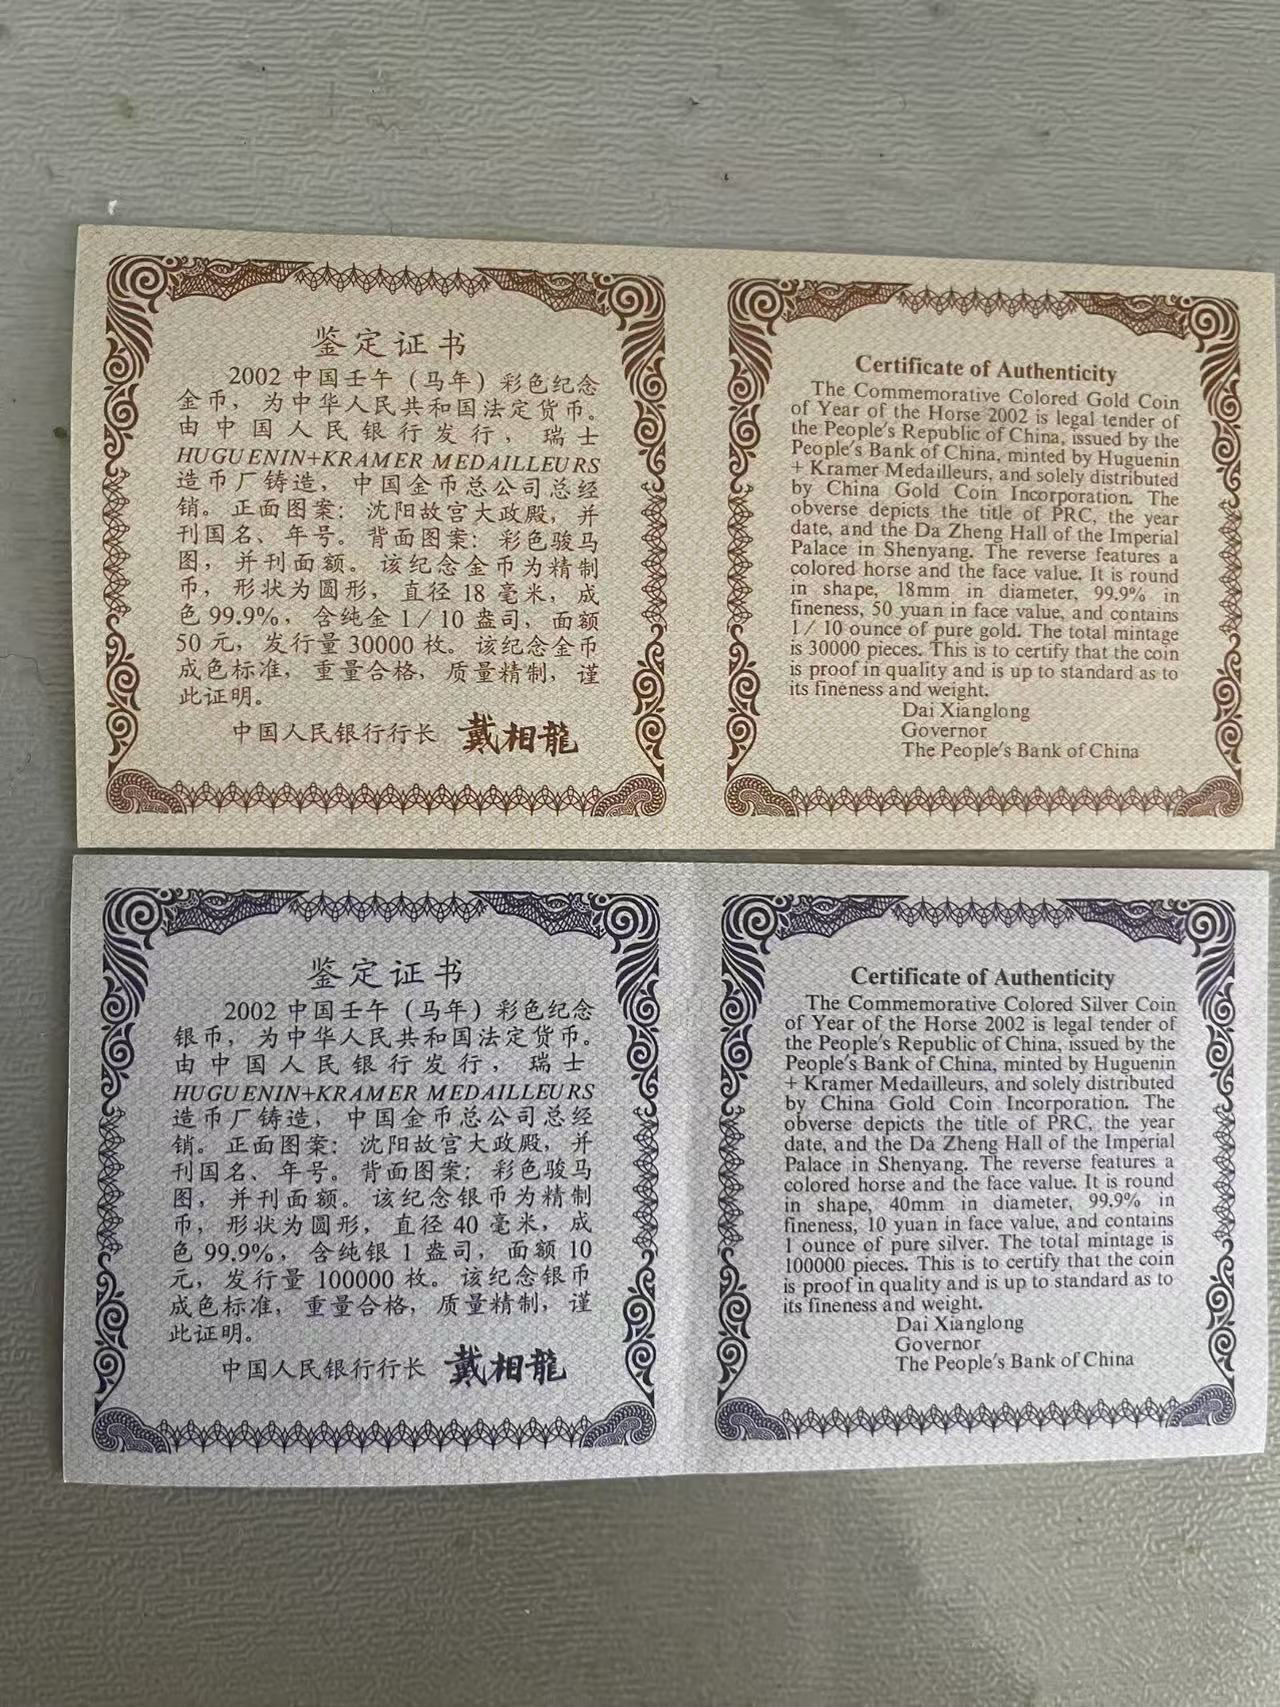 鉴定证书
2002 中国壬午（马年）彩色纪念
金币，为中华人民共和国法定货币。
由中国人民银行发行，瑞士
HUGUENIN+KRAMER MEDAILLEURS
造币厂铸造，中国金币总公司总经
销。正面图案：沈阳故宫大政殿，并
刊国名、年号。背面图案：彩色骏马
图，并刊面额。该纪念金币为精制
币，形状为圆形，直径 18 毫米，成
色 99.9%，含纯金 1/10 盎司，面额
50 元，发行量 30000 枚。该纪念金币
成色标准，重量合格，质量精制，谨
此证明。
中国人民银行行长 戴相龍
Certificate of Authenticity
The Commemorative Colored Gold Coin
of Year of the Horse 2002 is legal tender of
the People's Republic of China, issued by the
People's Bank of China, minted by Huguenin
+ Kramer Medailleurs, and solely distributed
by China Gold Coin Incorporation. The
obverse depicts the title of PRC, the year
date, and the Da Zheng Hall of the Imperial
Palace in Shenyang. The reverse features a
colored horse and the face value. It is round
in shape, 18mm in diameter, 99.9% in
fineness, 50 yuan in face value, and contains
1/10 ounce of pure gold. The total mintage
is 30000 pieces. This is to certify that the coin
is proof in quality and is up to standard as to
its fineness and weight.
Dai Xianglong
Governor
The People's Bank of China
鉴定证书
2002 中国壬午（马年）彩色纪念
银币，为中华人民共和国法定货币。
由中国人民银行发行，瑞士
HUGUENIN+KRAMER MEDAILLEURS
造币厂铸造，中国金币总公司总经
销。正面图案：沈阳故宫大政殿，并
刊国名、年号。背面图案：彩色骏马
图，并刊面额。该纪念银币为精制
币，形状为圆形，直径 40 毫米，成
色 99.9%，含纯银 1 盎司，面额 10
元，发行量 100000 枚。该纪念银币
成色标准，重量合格，质量精制，谨
此证明。
中国人民银行行长 戴相龍
Certificate of Authenticity
The Commemorative Colored Silver Coin
of Year of the Horse 2002 is legal tender of
the People's Republic of China, issued by the
People's Bank of China, minted by Huguenin
+ Kramer Medailleurs, and solely distributed
by China Gold Coin Incorporation. The
obverse depicts the title of PRC, the year
date, and the Da Zheng Hall of the Imperial
Palace in Shenyang. The reverse features a
colored horse and the face value. It is round
in shape, 40mm in diameter, 99.9% in
fineness, 10 yuan in face value, and contains
1 ounce of pure silver. The total mintage is
100000 pieces. This is to certify that the coin
is proof in quality and is up to standard as to
its fineness and weight.
Dai Xianglong
Governor
The People's Bank of China